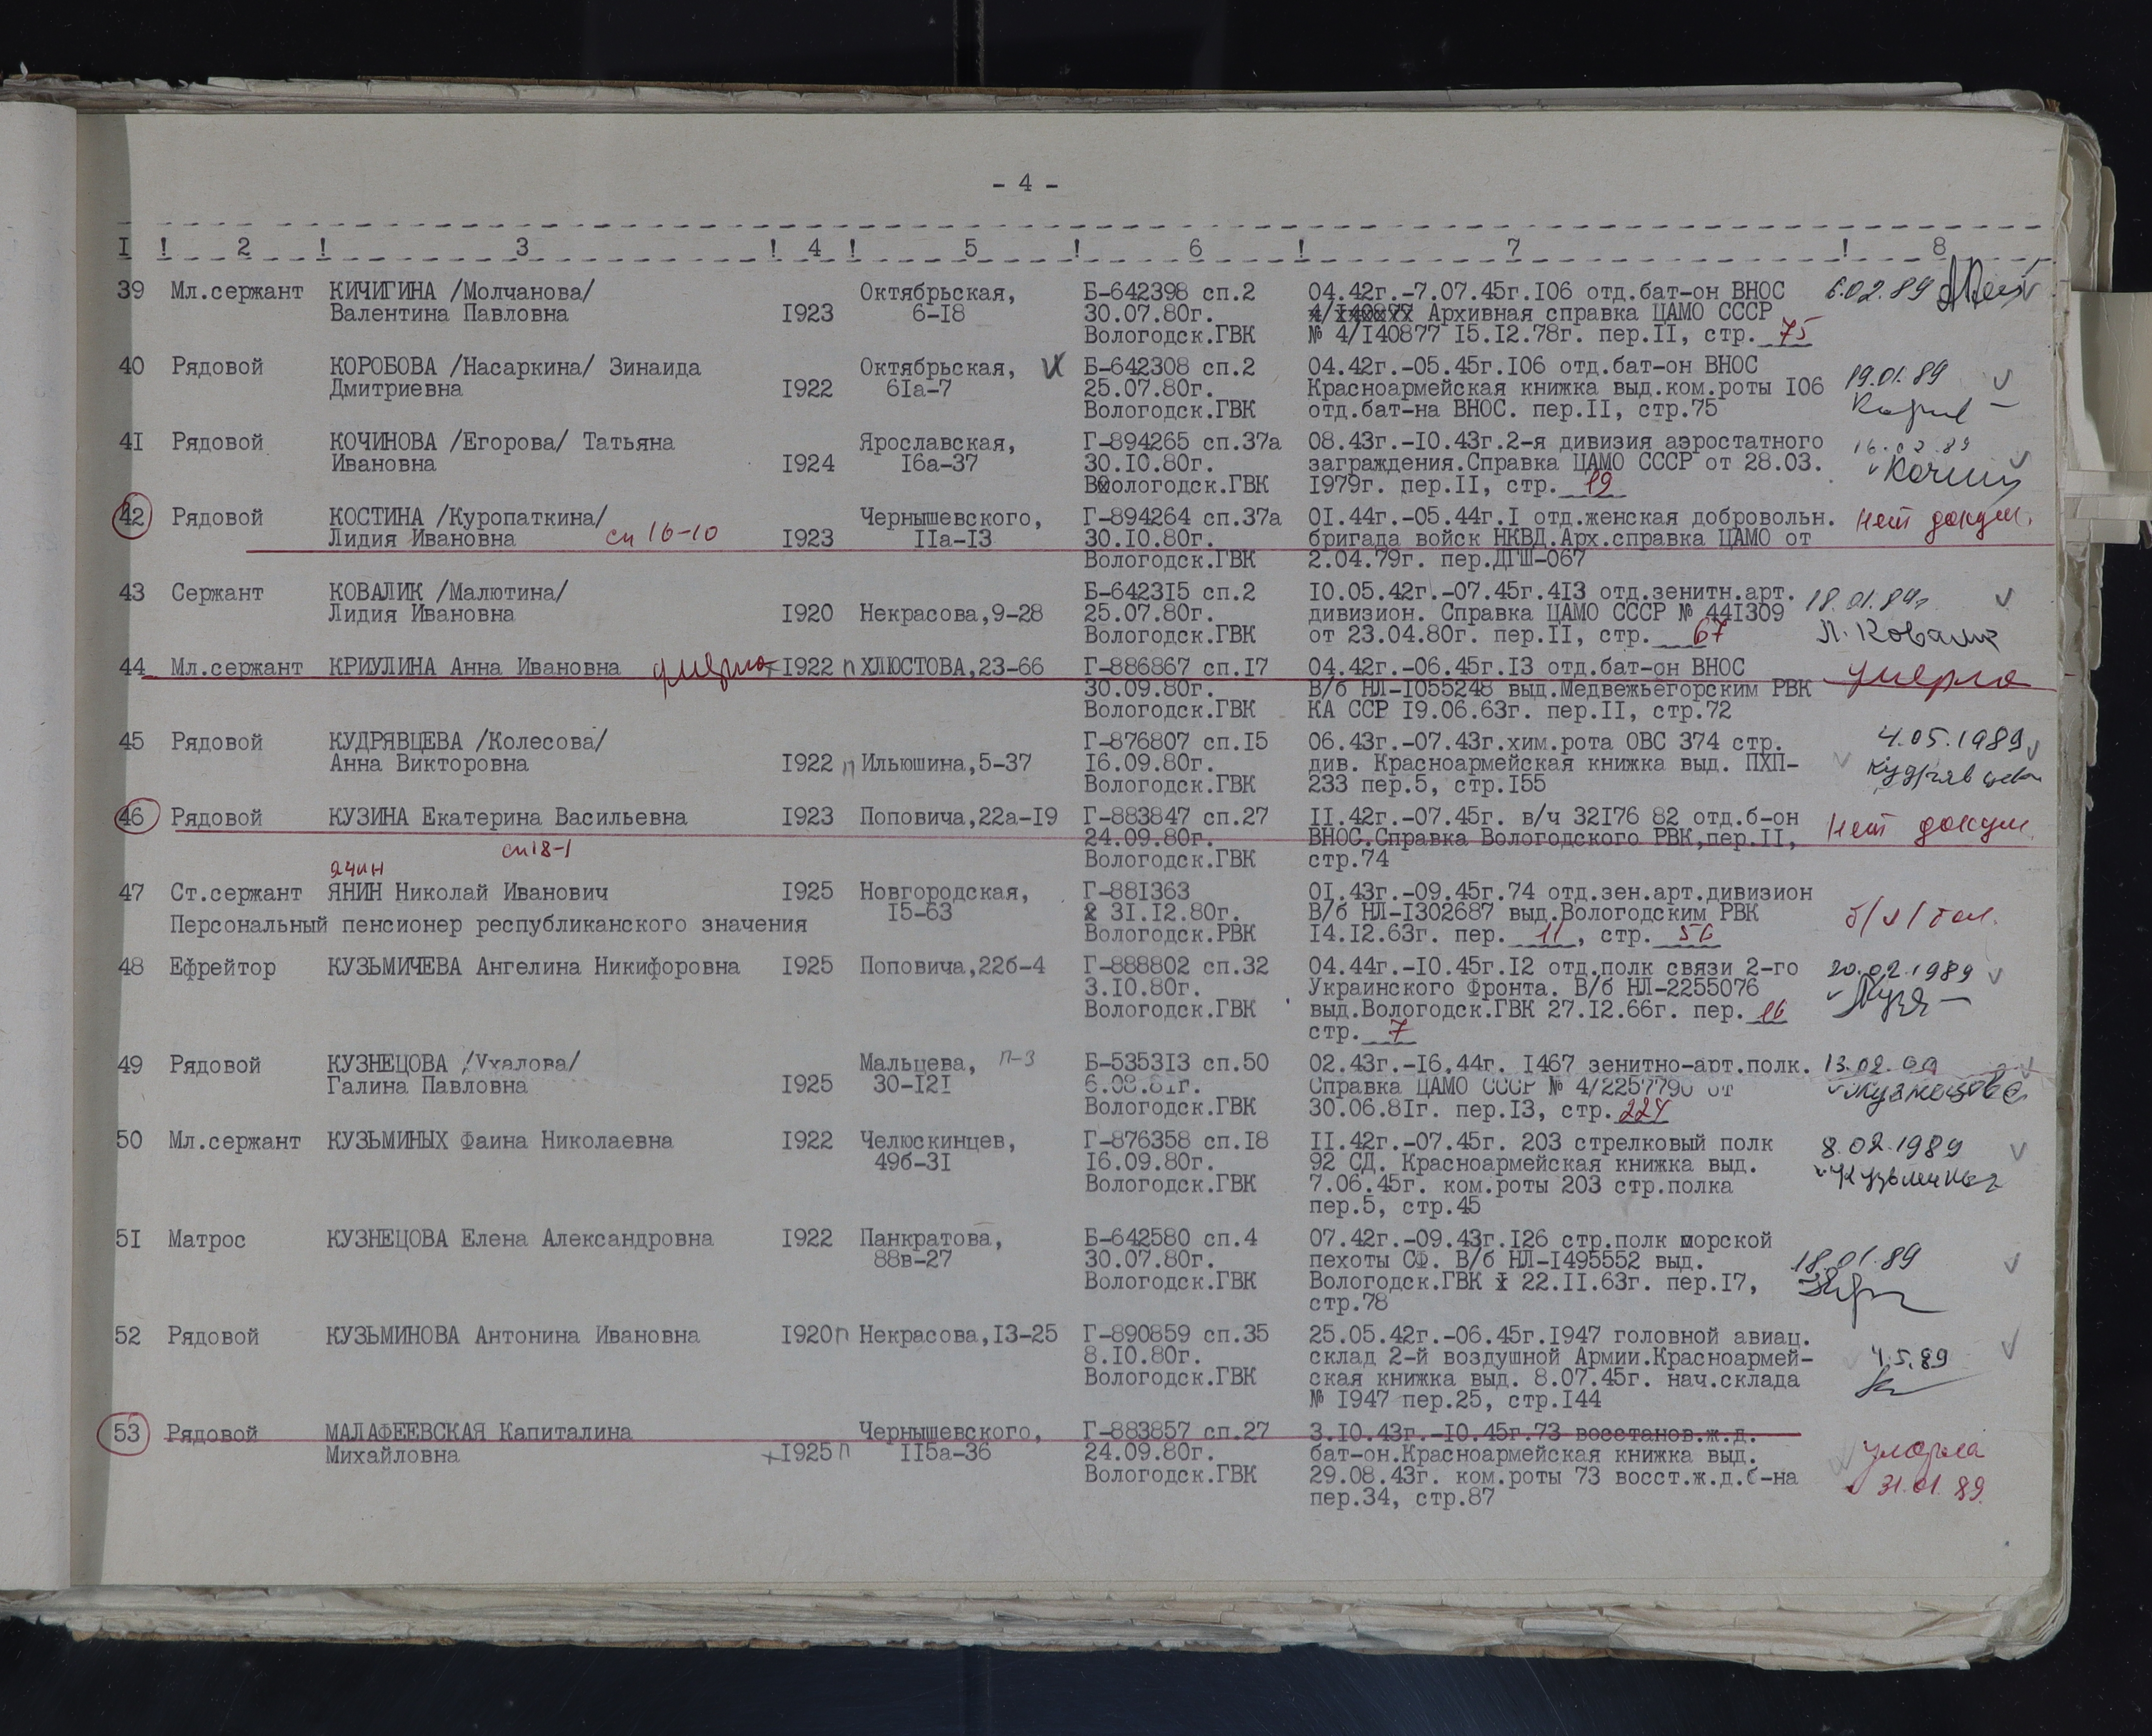 - 4 -
I ! 2 ! 3 ! 4 ! 5 ! 6 ! 7 ! 8
39 Мл.сержант КИЧИГИНА /Молчанова/ Октябрьская, Б-642398 сп.2 04.42г.-7.07.45г.I06 отд.бат-он ВНОС 6.02.89
Валентина Павловна I923 6-I8 30.07.80г. 4/I40877 Архивная справка ЦАМО СССР
Вологодск.ГВК № 4/I40877 I5.I2.78г. пер.II, стр. 75
40 Рядовой КОРОБОВА /Насаркина/ Зинаида Октябрьская, V Б-642308 сп.2 04.42г.-05.45г.I06 отд.бат-он ВНОС 19.01.89
Дмитриевна I922 6Iа-7 25.07.80г. Красноармейская книжка выд.ком.роты I06
Вологодск.ГВК отд.бат-на ВНОС. пер.II, стр.75
4I Рядовой КОЧИНОВА /Егорова/ Татьяна Ярославская, Г-894265 сп.37а 08.43г.-I0.43г.2-я дивизия аэростатного 16.02.89
Ивановна I924 I6а-37 30.I0.80г. заграждения.Справка ЦАМО СССР от 28.03.
Вологодск.ГВК I979г. пер.II, стр. 19
42 Рядовой КОСТИНА /Куропаткина/ Чернышевского, Г-894264 сп.37а 0I.44г.-05.44г.I отд.женская добровольн. нет докум.
Лидия Ивановна сп 16-10 I923 IIа-I3 30.I0.80г. бригада войск НКВД.Арх.справка ЦАМО от
Вологодск.ГВК 2.04.79г. пер.ДГШ-067
43 Сержант КОВАЛИК /Малютина/ Б-6423I5 сп.2 I0.05.42г.-07.45г.4I3 отд.зенитн.арт. 18.01.89г
Лидия Ивановна I920 Некрасова,9-28 25.07.80г. дивизион. Справка ЦАМО СССР № 44I309
Вологодск.ГВК от 23.04.80г. пер.II, стр. 67 Л. Ковалик
44 Мл.сержант КРИУЛИНА Анна Ивановна умерла I922 п ХЛЮСТОВА,23-66 Г-886867 сп.I7 04.42г.-06.45г.I3 отд.бат-он ВНОС умерла
30.09.80г. В/б НЛ-I055248 выд.Медвежьегорским РВК
Вологодск.ГВК КА ССР I9.06.63г. пер.II, стр.72
45 Рядовой КУДРЯВЦЕВА /Колесова/ Г-876807 сп.I5 06.43г.-07.43г.хим.рота ОВС 374 стр. 4.05.1989
Анна Викторовна I922 п Ильюшина,5-37 I6.09.80г. див. Красноармейская книжка выд. ПХП- Кудрявцева
Вологодск.ГВК 233 пер.5, стр.I55
46 Рядовой КУЗИНА Екатерина Васильевна I923 Поповича,22а-I9 Г-883847 сп.27 II.42г.-07.45г. в/ч 32I76 82 отд.б-он Нет докум.
24.09.80г. ВНОС.Справка Вологодского РВК,пер.II,
сп18-1 Вологодск.ГВК стр.74
Яшин
47 Ст.сержант ЯНИН Николай Иванович I925 Новгородская, Г-88I363 0I.43г.-09.45г.74 отд.зен.арт.дивизион
I5-63 3I.I2.80г. В/б НЛ-I302687 выд.Вологодским РВК
Персональный пенсионер республиканского значения Вологодск.РВК I4.I2.63г. пер. 11, стр. 56
48 Ефрейтор КУЗЬМИЧЕВА Ангелина Никифоровна I925 Поповича,22б-4 Г-888802 сп.32 04.44г.-I0.45г.I2 отд.полк связи 2-го 20.02.1989
3.I0.80г. Украинского Фронта. В/б НЛ-2255076
Вологодск.ГВК выд.Вологодск.ГВК 27.I2.66г. пер. 16
стр. 7
49 Рядовой КУЗНЕЦОВА /Ухалова/ Мальцева, П-3 Б-5353I3 сп.50 02.43г.-I6.44г. I467 зенитно-арт.полк. 13.02.
Галина Павловна I925 30-I2I 6.08.8Iг. Справка ЦАМО СССР № 4/2257790 от Кузнецова
Вологодск.ГВК 30.06.8Iг. пер.I3, стр. 224
50 Мл.сержант КУЗЬМИНЫХ Фаина Николаевна I922 Челюскинцев, Г-876358 сп.I8 II.42г.-07.45г. 203 стрелковый полк 8.02.1989
49б-3I I6.09.80г. 92 СД. Красноармейская книжка выд. Кузьминых
Вологодск.ГВК 7.06.45г. ком.роты 203 стр.полка
пер.5, стр.45
5I Матрос КУЗНЕЦОВА Елена Александровна I922 Панкратова, Б-642580 сп.4 07.42г.-09.43г.I26 стр.полк морской
88в-27 30.07.80г. пехоты СФ. В/б НЛ-I495552 выд. 18.01.89
Вологодск.ГВК Вологодск.ГВК 22.II.63г. пер.I7,
стр.78
52 Рядовой КУЗЬМИНОВА Антонина Ивановна I920 п Некрасова,I3-25 Г-890859 сп.35 25.05.42г.-06.45г.I947 головной авиац.
8.I0.80г. склад 2-й воздушной Армии.Красноармей- 4.5.89
Вологодск.ГВК ская книжка выд. 8.07.45г. нач.склада
№ I947 пер.25, стр.I44
53 Рядовой МАЛАФЕЕВСКАЯ Капиталина Чернышевского, Г-883857 сп.27 3.I0.43г.-I0.45г.73 восстанов.ж.д.
Михайловна I925 п II5а-36 24.09.80г. бат-он.Красноармейская книжка выд. умерла
Вологодск.ГВК 29.08.43г. ком.роты 73 восст.ж.д.б-на 31.01.89
пер.34, стр.87